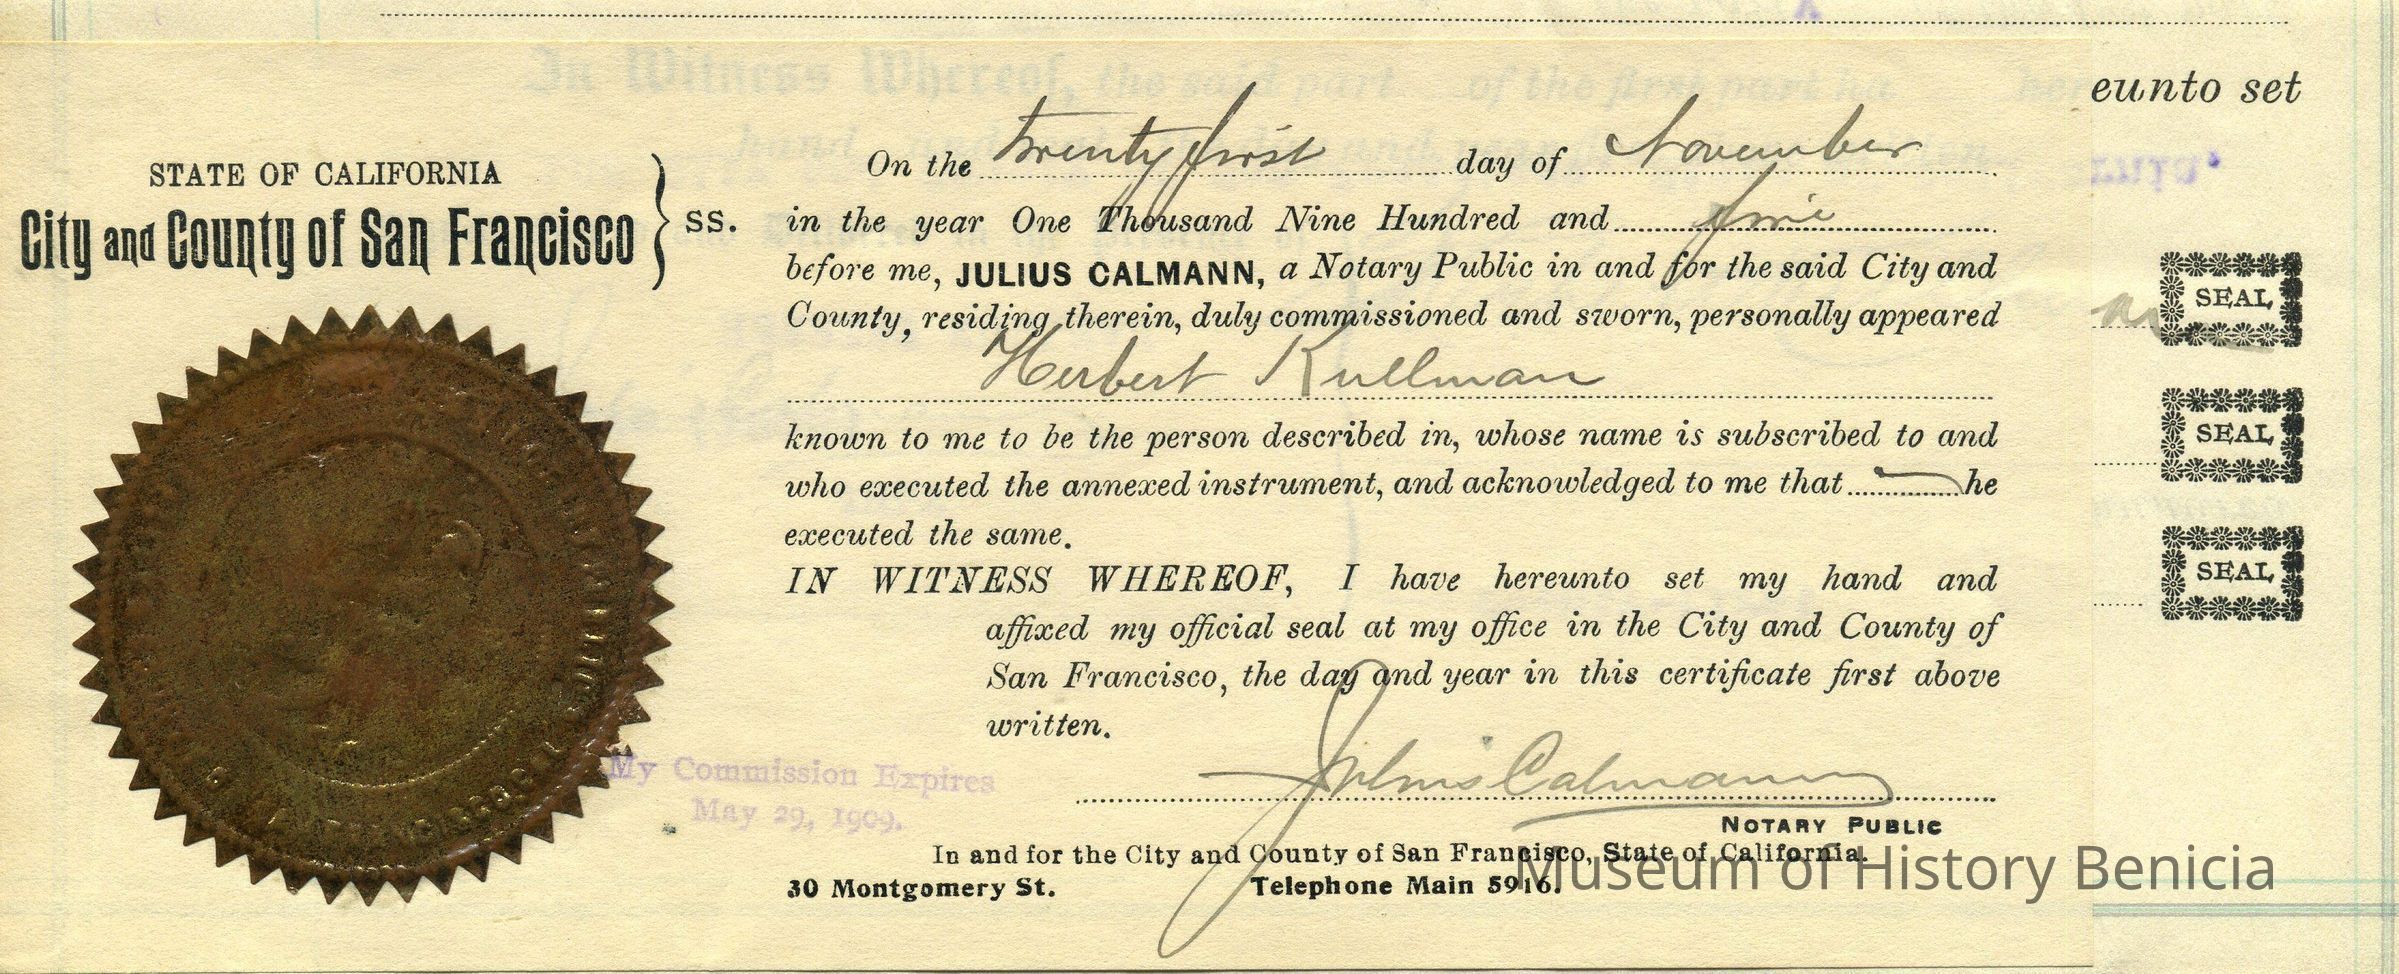 In Witness Whereof, the said part of the first part ha hereunto set
hand and
STATE OF CALIFORNIA
City and County of San Francisco
SS.
On the twenty first day of November
in the year One Thousand Nine Hundred and five
before me, JULIUS CALMANN, a Notary Public in and for the said City and
County, residing therein, duly commissioned and sworn, personally appeared
Herbert Kullman
known to me to be the person described in, whose name is subscribed to and
who executed the annexed instrument, and acknowledged to me that he
executed the same.
IN WITNESS WHEREOF, I have hereunto set my hand and
affixed my official seal at my office in the City and County of
San Francisco, the day and year in this certificate first above
written.
My Commission Expires
May 29, 1909.
Julius Calmann
NOTARY PUBLIC
In and for the City and County of San Francisco, State of California.
30 Montgomery St. Telephone Main 5916.
SEAL
SEAL
SEAL
Museum of History Benicia